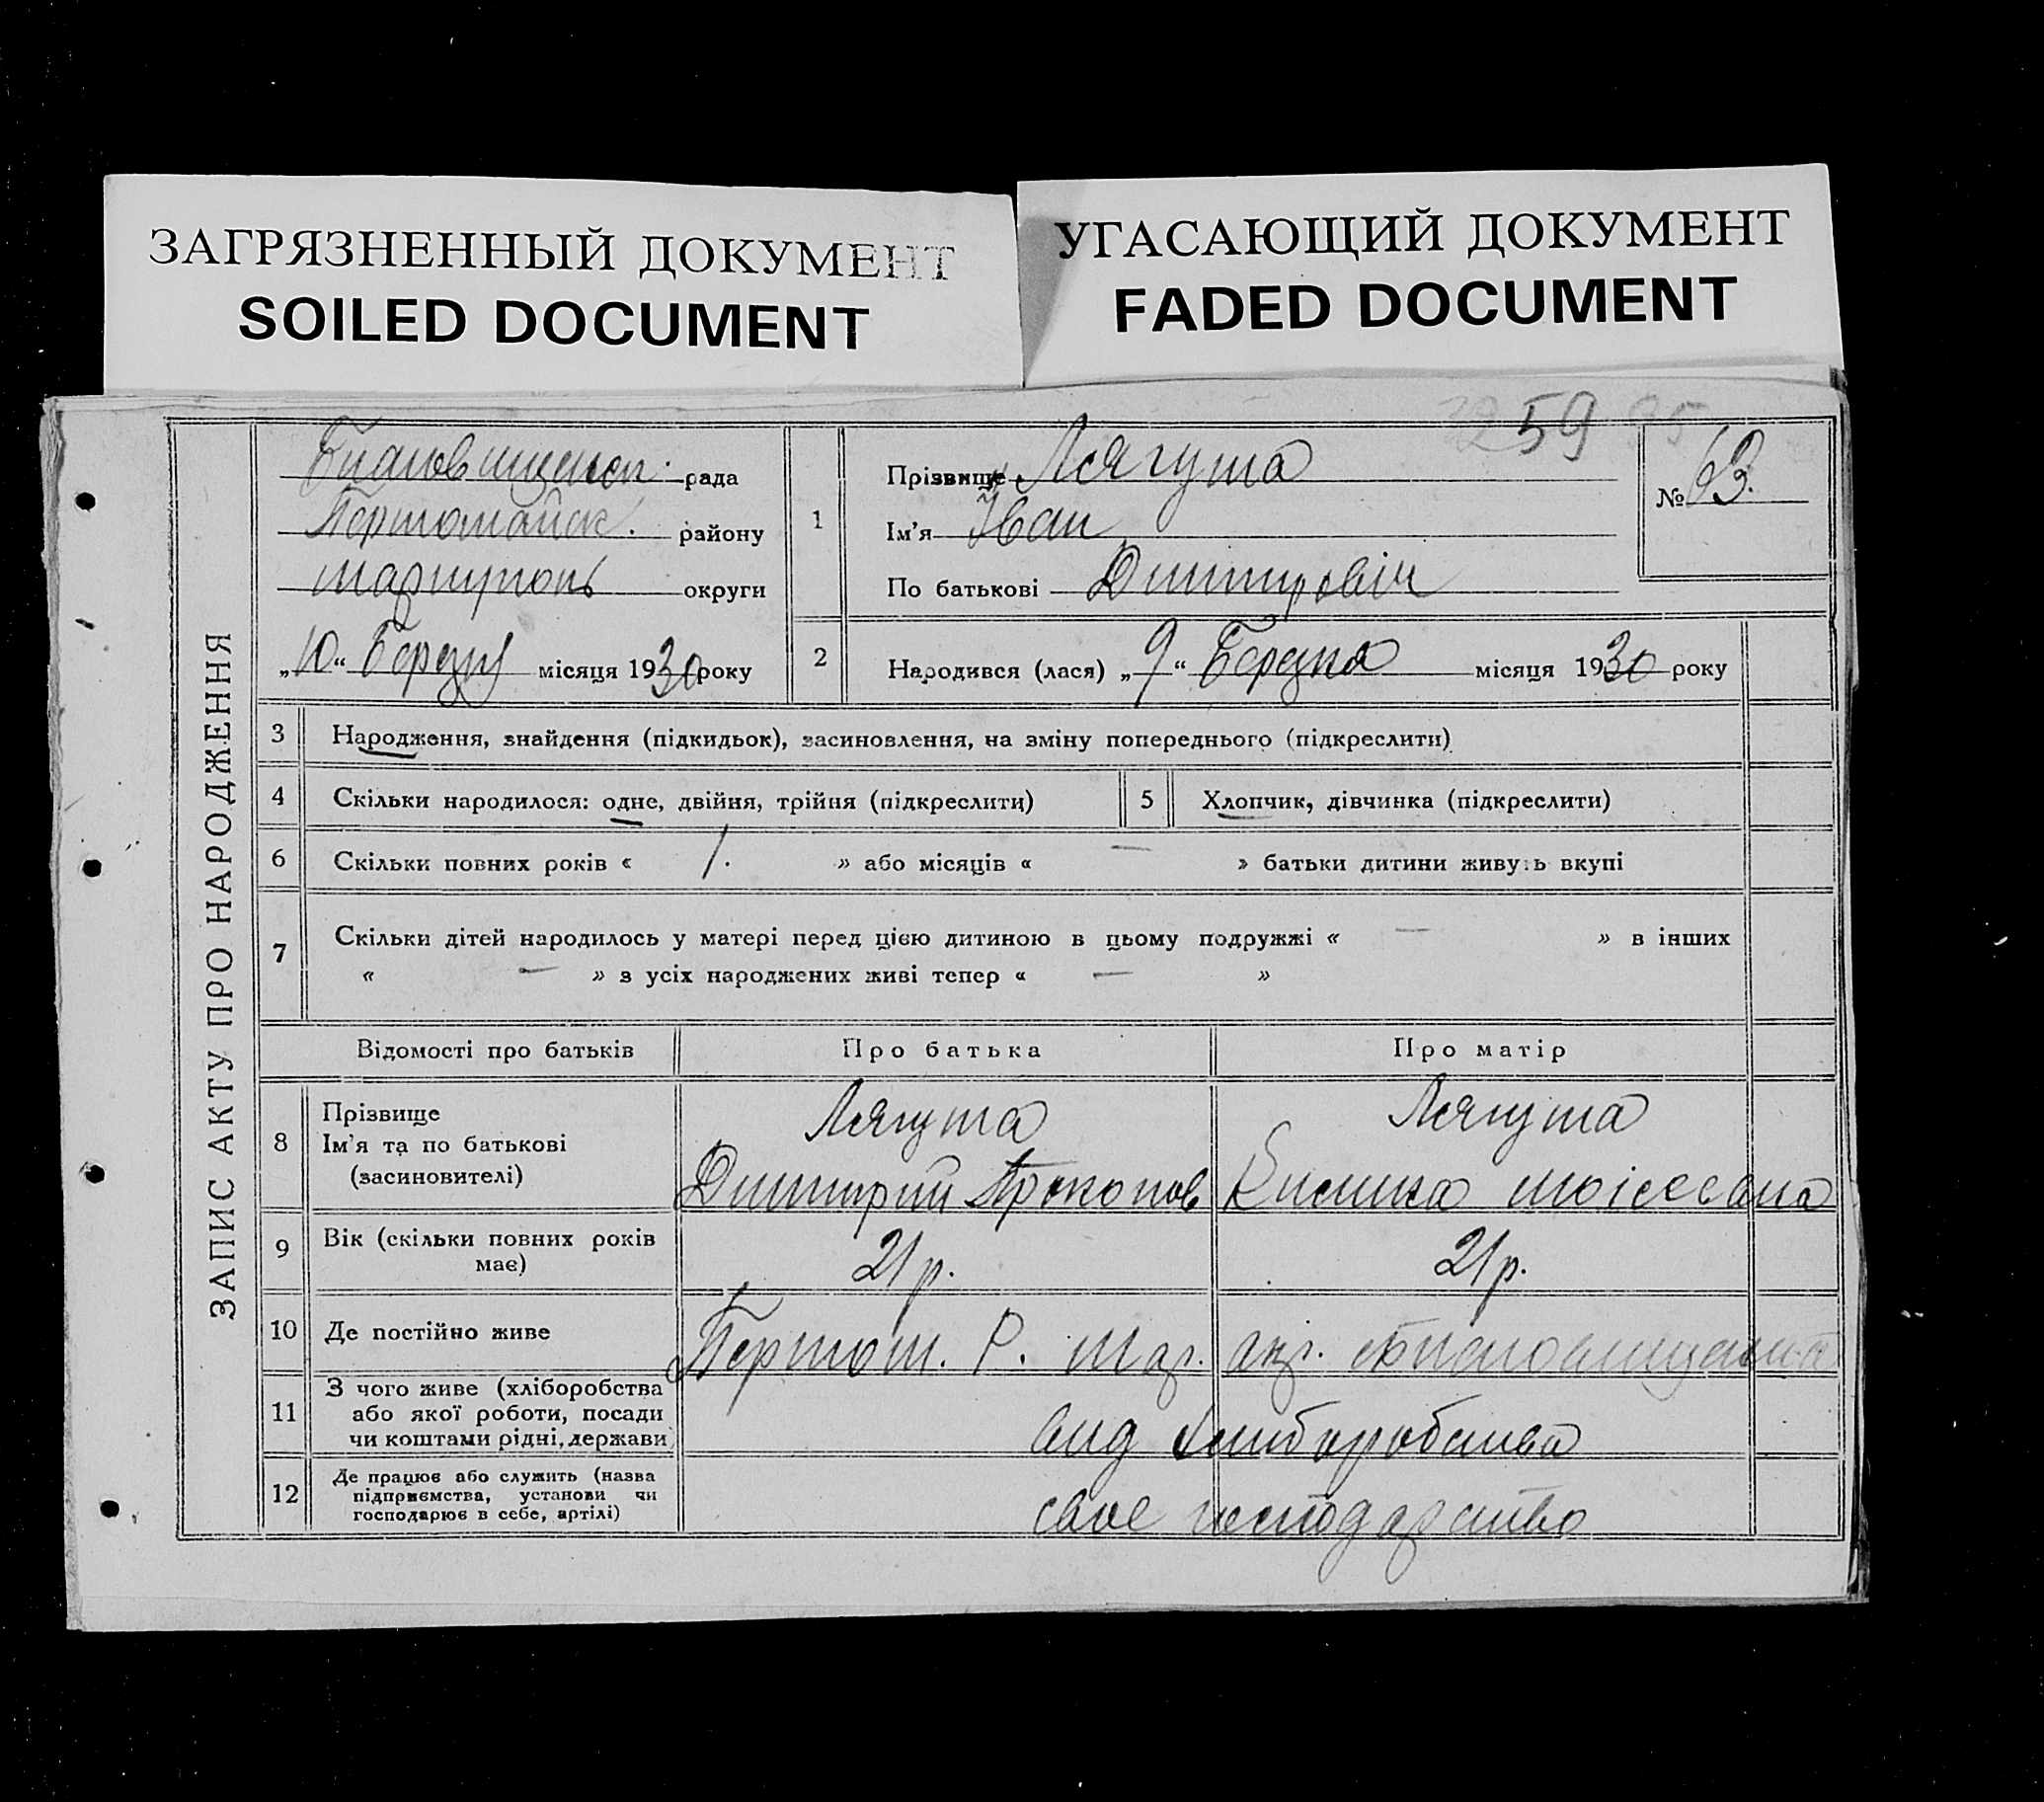 ЗАГРЯЗНЕННЫЙ ДОКУМЕНТ
SOILED DOCUMENT
УГАСАЮЩИЙ ДОКУМЕНТ
FADED DOCUMENT
59
ЗАПИС АКТУ ПРО НАРОДЖЕННЯ
рада
Першомайск. району
Маріуполь округи
„10“ Березня місяця 1930 року
1
Прізвище Лягуша
Ім'я Іван
По батькові Дмитрович
№ 63.
2
Народився (лася) „9“ Березня місяця 1930 року
3 Народження, знайдення (підкидьок), засиновлення, на зміну попереднього (підкреслити)
4 Скільки народилося: одне, двійня, трійня (підкреслити)
5 Хлопчик, дівчинка (підкреслити)
6 Скільки повних років « 1. » або місяців « — » батьки дитини живуть вкупі
7 Скільки дітей народилось у матері перед цією дитиною в цьому подружжі « — » в інших
« — » з усіх народжених живі тепер « — »
Відомості про батьків Про батька Про матір
8 Прізвище
Ім'я та по батькові
(засиновителі)
Лягуша
Дмитрий Прокопов
Лягуша
9 Вік (скільки повних років
має)
21 р.
21 р.
10 Де постійно живе
Першом. Р. Мар. окр.
11 З чого живе (хліборобства
або якої роботи, посади
чи коштами рідні, держави)
вид хлиборобства
12 Де працює або служить (назва
підприємства, установи чи
господарює в себе, артілі)
своє господарство